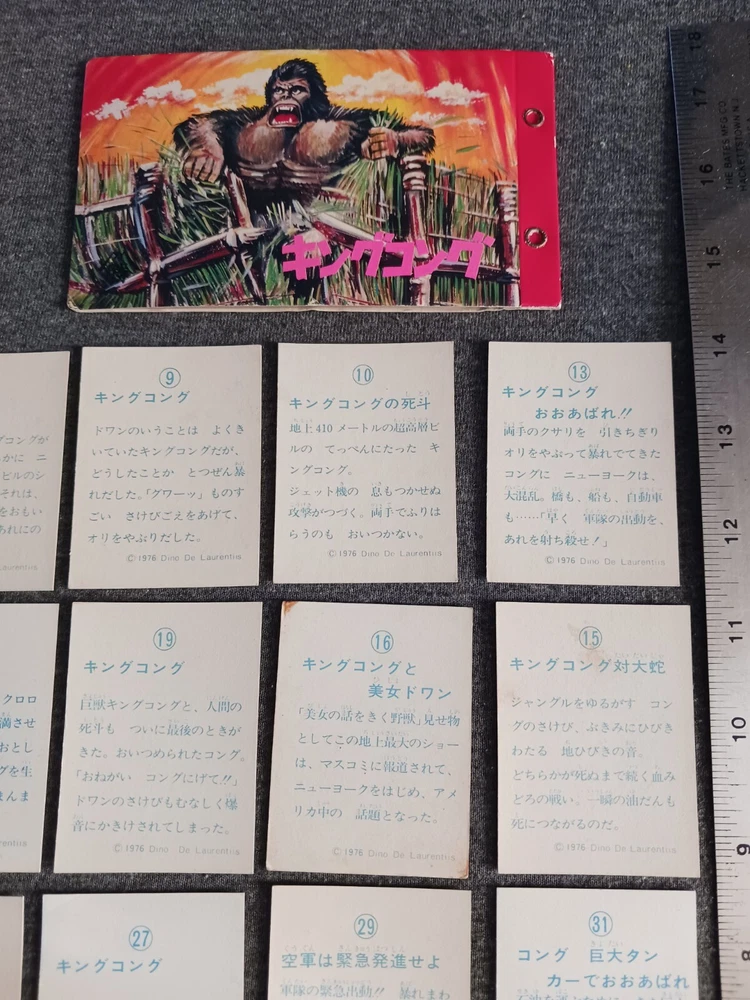 キングコング
18
17
16
15
14
13
12
11
10
9
8
⑨
キングコング
ドワンのいうことは よくき
いていたキングコングだが、
どうしたことか とつぜん暴
れだした。「グワーッ」ものす
ごい さけびごえをあげて、
オリをやぶりだした。
© 1976 Dino De Laurentiis
⑩
キングコングの死斗
地上410メートルの超高層ビ
ルの てっぺんにたった キ
ングコング。
ジェット機の 息もつかせぬ
攻撃がつづく。両手でふりは
らうのも おいつかない。
© 1976 Dino De Laurentiis
⑬
キングコング
おおあばれ!!
両手のクサリを 引きちぎり
オリをやぶって暴れでてきた
コングに ニューヨークは、
大混乱。橋も、船も、自動車
も……「早く 軍隊の出動を、
あれを射ち殺せ!」
© 1976 Dino De Laurentiis
クロロ
満させ
おとし
グを生
まんま
⑲
キングコング
巨獣キングコングと、人間の
死斗も ついに最後のときが
きた。おいつめられたコング。
「おねがい コングにげて!!」
ドワンのさけびもむなしく爆
音にかきけされてしまった。
© 1976 Dino De Laurentiis
⑯
キングコングと
美女ドワン
「美女の話をきく野獣」見せ物
としてこの地上最大のショー
は、マスコミに報道されて、
ニューヨークをはじめ、アメ
リカ中の 話題となった。
© 1976 Dino De Laurentiis
⑮
キングコング対大蛇
ジャングルをゆるがす コン
グのさけび、ぶきみにひびき
わたる 地ひびきの音。
どちらかが死ぬまで続く血み
どろの戦い。一瞬の油だんも
死につながるのだ。
© 1976 Dino De Laurentiis
㉗
キングコング
㉙
空軍は緊急発進せよ
軍隊の緊急出動!! 暴れまわ
㉛
コング 巨大タン
カーでおおあばれ